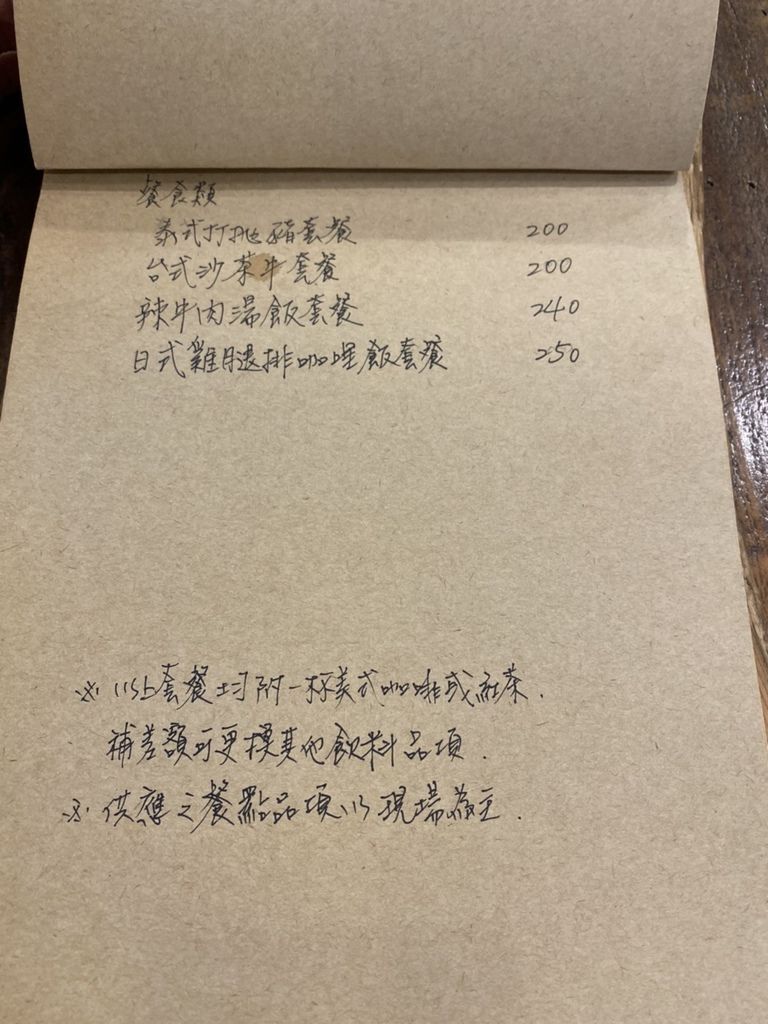 餐食類
泰式打拋豬套餐 200
台式沙茶牛套餐 200
辣牛肉湯飯套餐 240
日式雞腿排咖哩飯套餐 250
※以上套餐均附一杯美式咖啡或紅茶.
補差額可更換其他飲料品項.
※供應之餐點品項以現場為主.